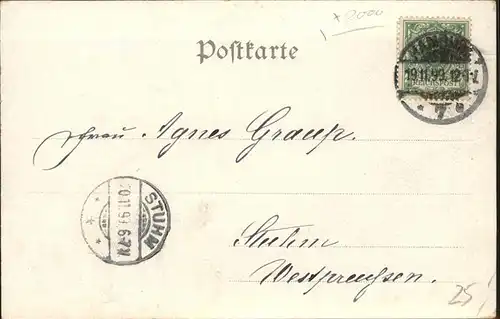 + 2000
Postkarte
19.11.99. 12-1N
* 7 b
Frau Agnes Graup.
STUHM
20.11.99 6-7V
Stuhm
Westpreußen.
25